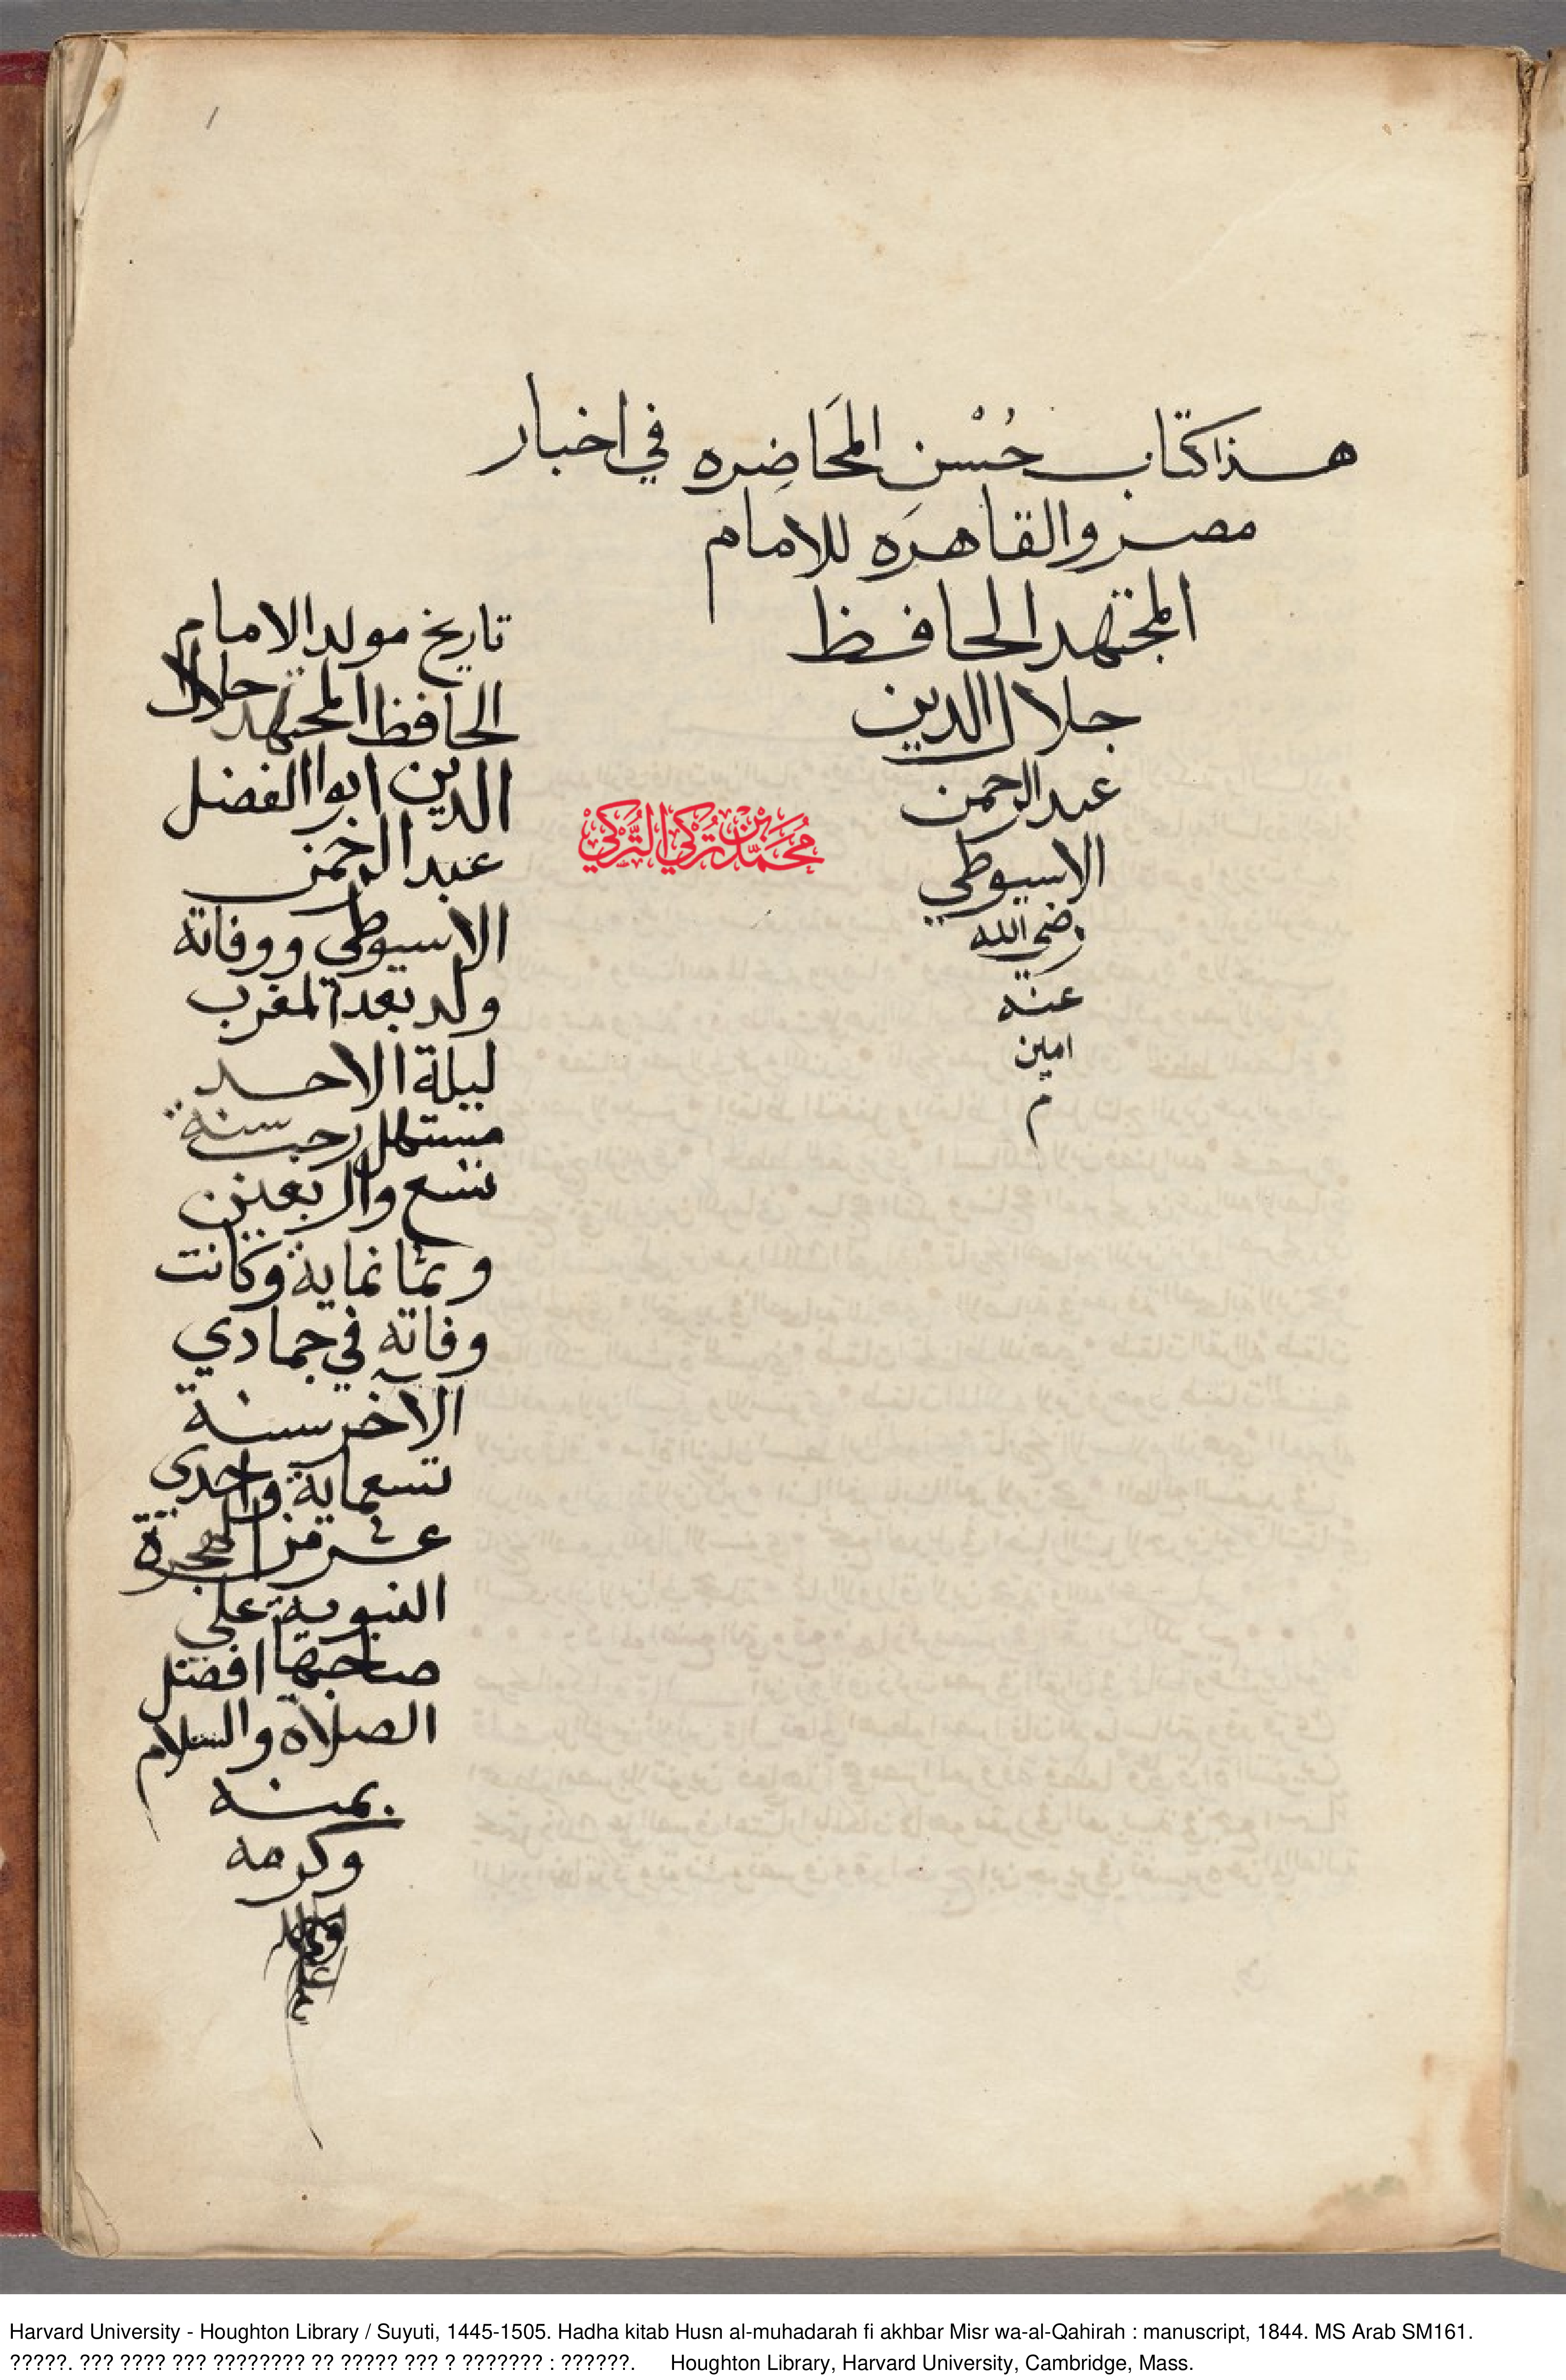 هذا كتاب حُسْنِ المحَاضِره في اخبار
مصر والقاهرَه للامام
المجتهد الحافظ
جلال الدين
عبد الرحمن
الاسيوطي
رضي الله
عنه
امين
م
محمد بن تركي التركي
تاريخ مولد الامام
الحافظ المجتهد جلال
الدين ابوا الفضل
عبد الرحمن
الاسيوطي ووفاته
ولد بعد المغرب
ليلة الاحد
مستهل رجب سنة
تسع واربعين
وثمانماية وكانت
وفاته في جمادي
الآخر سنة
تسعماية واحدي
عشر من الهجرة
النبوية علي
صاحبها افضل
الصلاة والسلام
بمنه
وكرمه
Harvard University - Houghton Library / Suyuti, 1445-1505. Hadha kitab Husn al-muhadarah fi akhbar Misr wa-al-Qahirah : manuscript, 1844. MS Arab SM161.
?????. ??? ???? ??? ???????? ?? ????? ??? ? ??????? : ??????. Houghton Library, Harvard University, Cambridge, Mass.